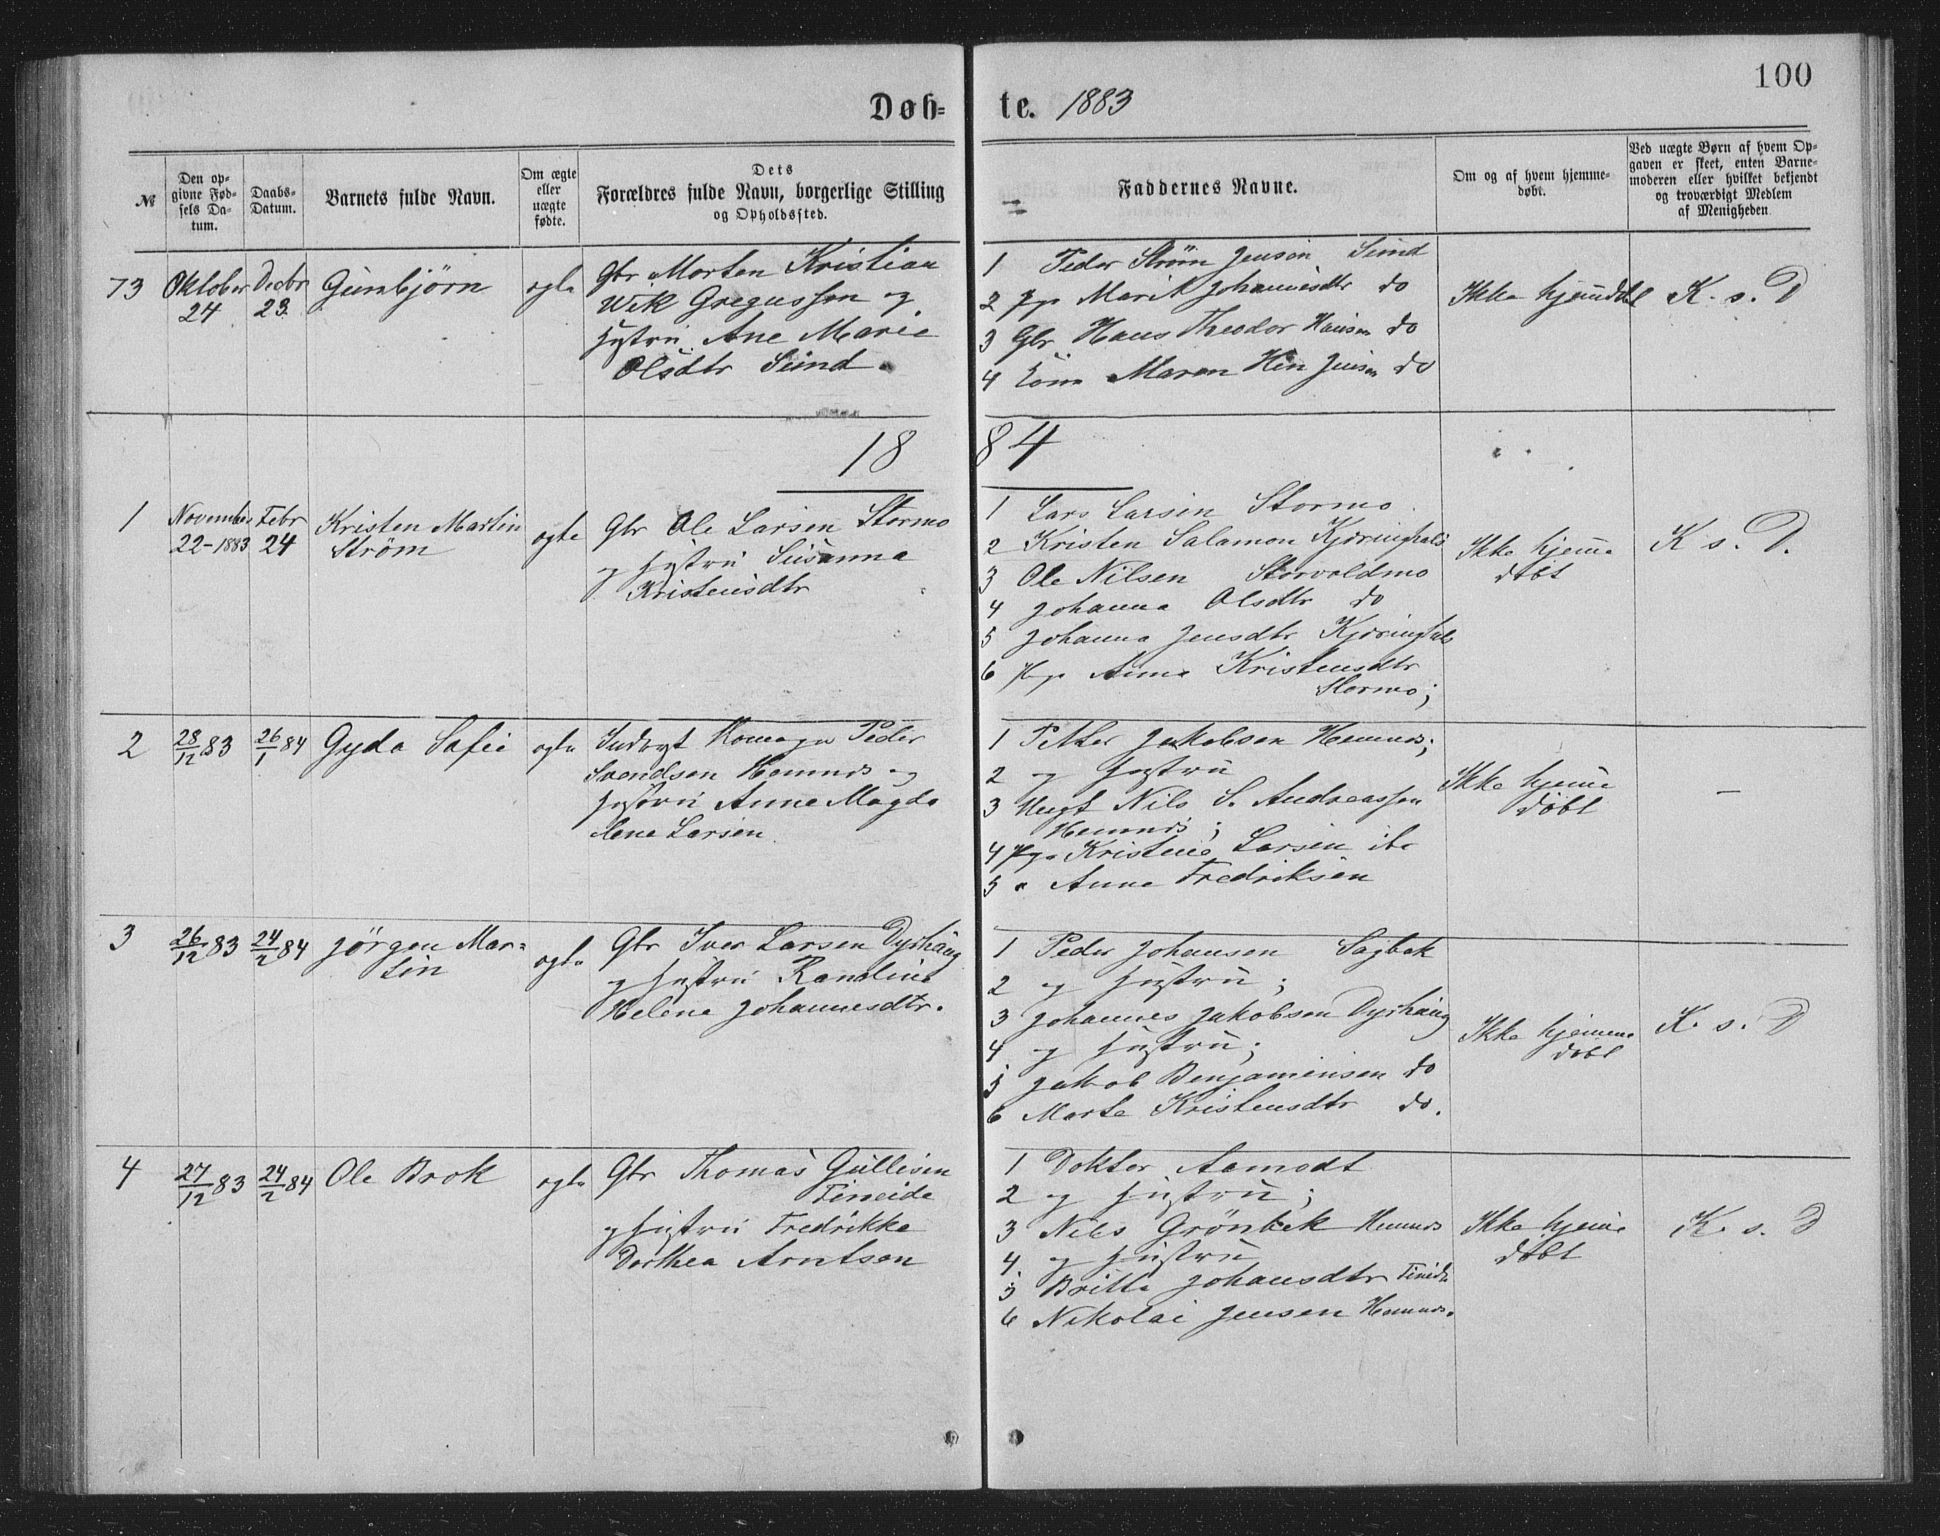 100
Døb= te. 1883
№
Den op-
givne Fød-
sels Da-
tum.
Daabs-
Datum.
Barnets fulde Navn.
Om ægte
eller
uægte
fødte.
Dets
Forældres fulde Navn, borgerlige Stilling
og Opholdssted.
Faddernes Navne.
Om og af hvem hjemme-
døbt.
Ved uægte Børn af hvem Op-
gaven er skeet, enten Barne-
moderen eller hvilket bekjendt
og troværdigt Medlem
af Menigheden
73
Oktober
24
Decbr
23
Gunbjørn
ægte
Gbr Morten Kristian
Wik Gregussen og
hustru Ane Marie
Olsdtr Sund.
1 Peder Strøm Jensen Sund
2 Pge Marit Johannesdtr do
3 Gbr Hans Theodor Hansen do
4 Maren Jensen do
K. s. D
18 84
1
November
22-1883
Febr
24
Kristen Martin
Strøm
ægte
Gbr Ole Larsen Stormo
og hustru Susanna
Kristensdtr
1 Lars Larsen Stormo
2 Kristen Salamon Kjæringhals
3 Ole Nilsen Storvoldmo
4 Johanna Olsdtr do
5 Johanna Jensdtr Kjæringhals
6 Pge Anna Kristensdtr
Stormo;
Ikke hjeme
døbt
K s. D.
2
28/12 83
26/1 84
Gyda Sofie
ægte
Peder
Svendsen Hemnes og
hustru Anne Magda
lene Larsen.
1 Petter Jakobsen Hemnes;
2 og hustru
3 Ungk Nils S. Andreassen
Hemnes;
4 Pge Kristine Larsen
5 " Anna Fredriksen
Ikke hjeme
døbt
–
3
26/12 83
24/2 84
Jørgen Mar=
tin
ægte
Gbr Iver Larsen Dyrhaug
og hustru Randine
Helene Johannesdtr.
1 Peder Johansen Sagbak
2 og hustru;
3 Johannes Jakobsen Dyrhaug
4 og hustru;
5 Jakob Benjaminsen do
6 Marte Kristensdtr do.
Ikke hjemme
døbt
K. s. D
4
27/12 83
24/2 84
Ole Brok
ægte
Gbr Thomas Gullesen
Fineide
og hustru Fredrikke
Dorthea Arntsen
1 Doktor Aamodt
2 og hustru;
3 Nils Grønbek Hemnes
4 og hustru
5 Britta Johansdtr Fineide
6 Nikolai Jensen Hemnes.
Ikke hjeme
døbt
K. s. D